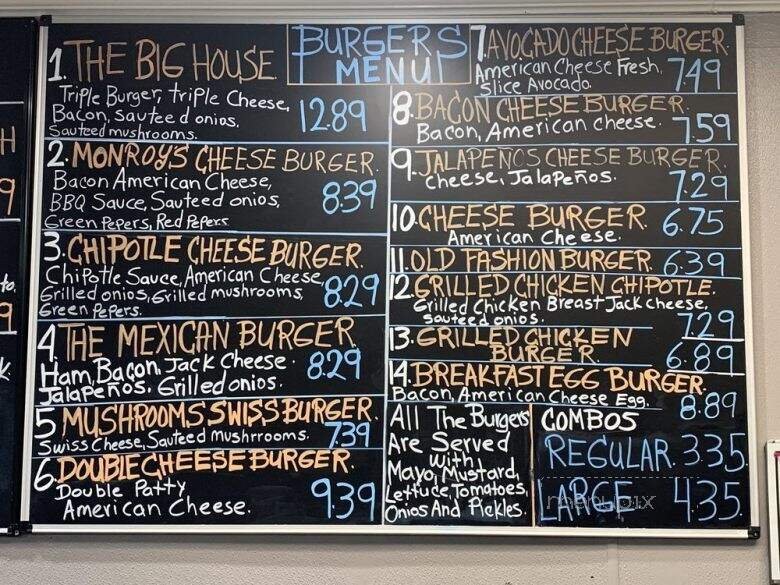 BURGERS
MENU
1. THE BIG HOUSE
Triple Burger, triple Cheese,
Bacon, sauteed onios.
Sauteed mushrooms.
12.89
2. MONROY'S CHEESE BURGER.
Bacon American Cheese,
BBQ Sauce, Sauteed onios,
Green Pepers, Red Pepers
8.39
3. CHIPOTLE CHEESE BURGER.
Chipotle Sauce, American Cheese
Grilled onios, Grilled mushrooms,
Green Pepers.
8.29
4. THE MEXICAN BURGER
Ham, Bacon, Jack Cheese.
Jalapeños. Grilled onios.
8.29
5 MUSHROOMS SWISS BURGER.
Swiss Cheese, Sauteed Mushrrooms.
7.39
6. DOUBLE CHEESE BURGER.
Double Patty
American Cheese.
9.39
7. AVOCADO CHEESE BURGER.
American Cheese Fresh,
Slice Avocado.
7.49
8. BACON CHEESE BURGER.
Bacon, American cheese.
7.59
9. JALAPEÑOS CHEESE BURGER.
Cheese, Jalapeños.
7.29
10. CHEESE BURGER. 6.75
American Cheese.
11. OLD FASHION BURGER. 6.39
12. GRILLED CHICKEN CHIPOTLE.
Grilled Chicken Breast Jack cheese,
sauteed onios.
7.29
13. GRILLED CHICKEN
BURGER.
6.89
14. BREAKFAST EGG BURGER.
Bacon, American Cheese Egg.
8.89
All The Burgers
Are Served
with,
Mayo, Mustard,
Lettuce, Tomatoes,
Onios And Pickles.
COMBOS
REGULAR. 3.35
LARGE. 4.35
menupix